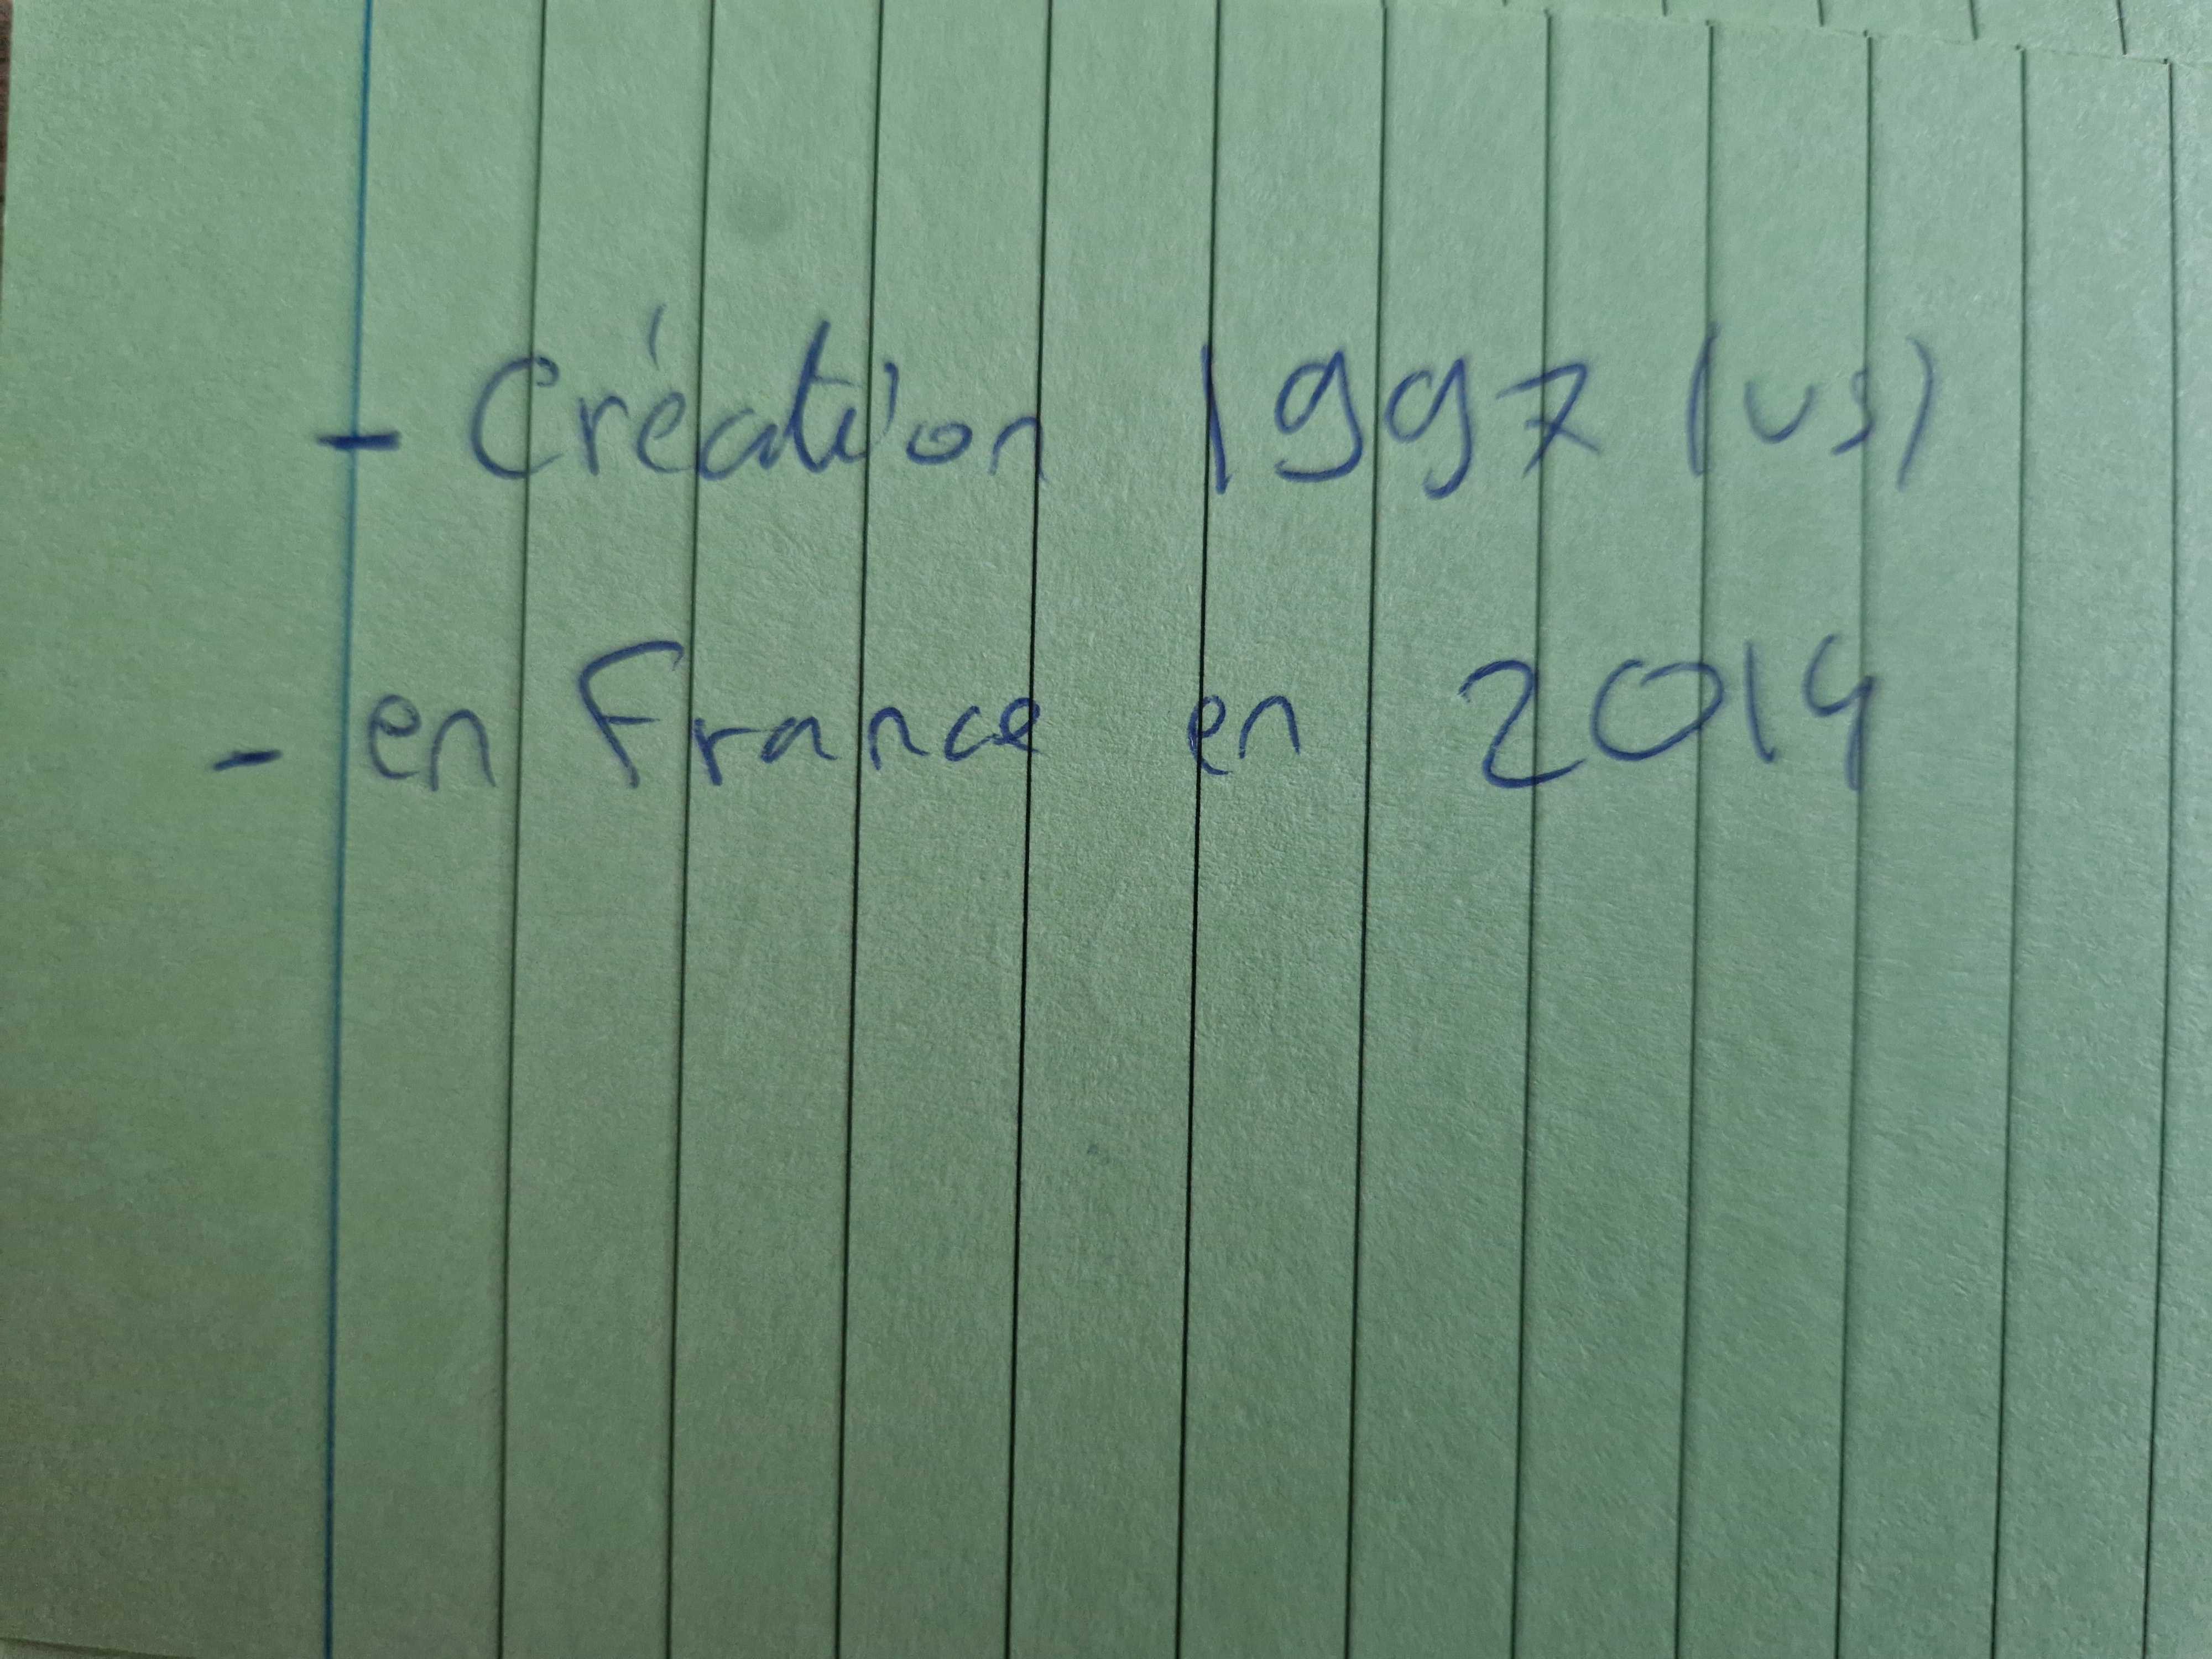 - Création 1997 (US)
- en France en 2014